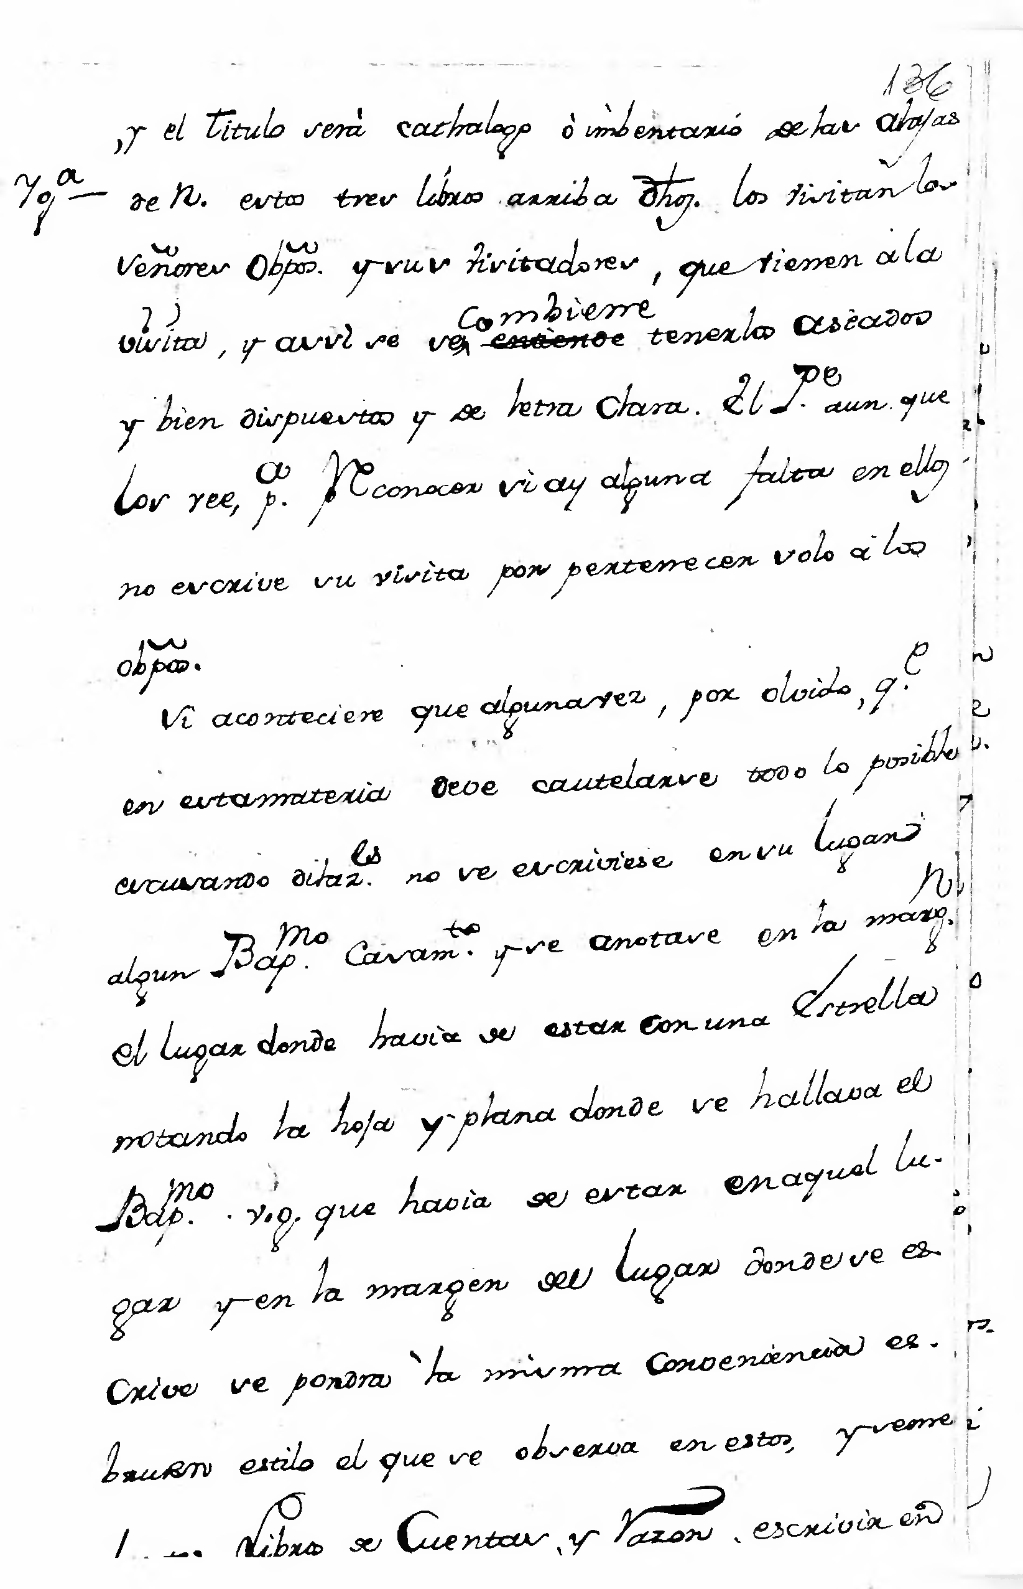 136
, y el Titulo será cathalogo ò imbentario de las alajas
Ygª
de N. estos tres libros arriba dhõs. los visitan los
Señores Obpõs. y sus visitadores, que vienen à la
visita, y assi se ve, entiende tenerlos aseados
Combiene
y bien dispuestos y de letra clara. El P.pe aun que
los vee, p.a Reconocer si ay alguna falta en ellos
no escrive su visita por pertenecer solo à los
obpõs.
Si aconteciere que alguna vez, por olvido, q.e
en esta materia deve cautelarse todo lo posible
escusando dilaz.es no se escriviese en su lugar
algun Bap.mo Casam.to y se anotase en la marg.n
el lugar donde havia de estar con una Estrella
notando la hoja y plana donde se hallava el
Bap.mo v.g. que havia de estar en aquel lu-
gar y en la margen del lugar donde se es-
crive se pondrà la misma Convenencia es.
buen estilo el que se observa en estos, y
Libros de Cuentas, y Razon, escrivir en